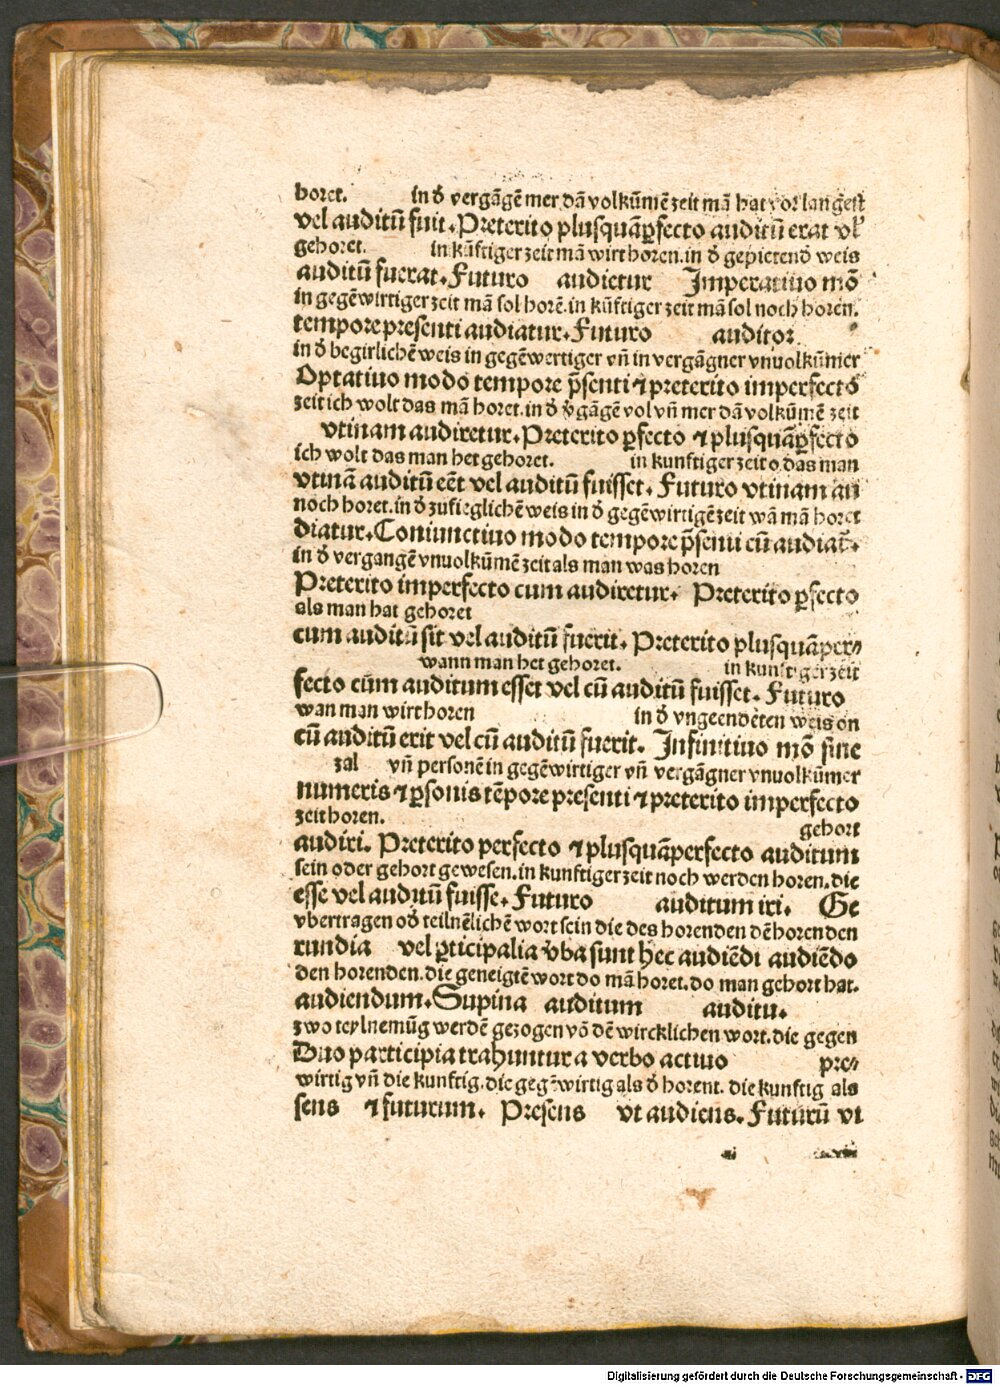 horet. in d̕ vergāgē mer dā volkūmē zeit mā hat vor langest
vel auditū fuit. Preterito plusquāꝑfecto auditū erat vl̕
gehoret. in kūftiger zeit mā wirt horen. in d̕ gepietend̕ weis
auditū fuerat. Futuro audietur Imperatiuo mō
in gegēwirtiger zeit mā sol horē. in kūftiger zeit mā sol noch horen.
tempore presenti audiatur. Futuro auditor
in d̕ begirlichē weis in gegēwertiger vn̄ in vergāgner vnuolkūmer
Optatiuo modo tempore p̄senti ⁊ preterito imperfecto
zeit ich wolt das mā horet. in d̕ v̕gāgē vol vn̄ mer dā volkūmē zeit
vtinam audiretur. Preterito ꝑfecto ⁊ plusquāꝑfecto
ich wolt das man het gehoret. in kunftiger zeit o das man
vtinā auditū eēt vel auditū fuisset. Futuro vtinam au
noch horet. in d̕ zufieglichē weis in d̕ gegēwirtigē zeit wā mā horet
diatur. Coniunctiuo modo tempore p̄senti cū audiat̄.
in d̕ vergangē vnuolkūmē zeit als man was horen
Preterito imperfecto cum audiretur. Preterito ꝑfecto
als man hat gehoret
cum auditū sit vel auditū fuerit. Preterito plusquāper⸗
wann man het gehoret. in kunftiger zeit
fecto cūm auditum esset vel cū auditū fuisset. Futuro
wan man wirt horen in d̕ vngeendeten weis on
cū auditū erit vel cū auditū fuerit. Infinitiuo mō sine
zal vn̄ personē in gegēwirtiger vn̄ vergāgner vnuolkūmer
numeris ⁊ ꝑsonis tēpore presenti ⁊ preterito imperfecto
zeit horen. gehort
audiri. Preterito perfecto ⁊ plusquāperfecto auditum
sein oder gehort gewesen. in kunftiger zeit noch werden horen. die
esse vel auditū fuisse. Futuro auditum iri. Ge
vbertragen od̕ teilnēlichē wort sein die des horenden dē horenden
rundia vel ꝑticipalia v̕ba sunt hec audiēdi audiēdo
den horenden. die geneigtē wort do mā horet. do man gehort hat.
audiendum. Supina auditum auditu.
zwo teylnemūg werdē gezogen vō dē wircklichen wort. die gegen
Duo participia trahuntur a verbo actiuo pre⸗
wirtig vn̄ die kunftig. die gegēwirtig als d̕ horent. die kunftig als
sens ⁊ futurum. Presens vt audiens. Futurū vt
Digitalisierung gefördert durch die Deutsche Forschungsgemeinschaft - DFG